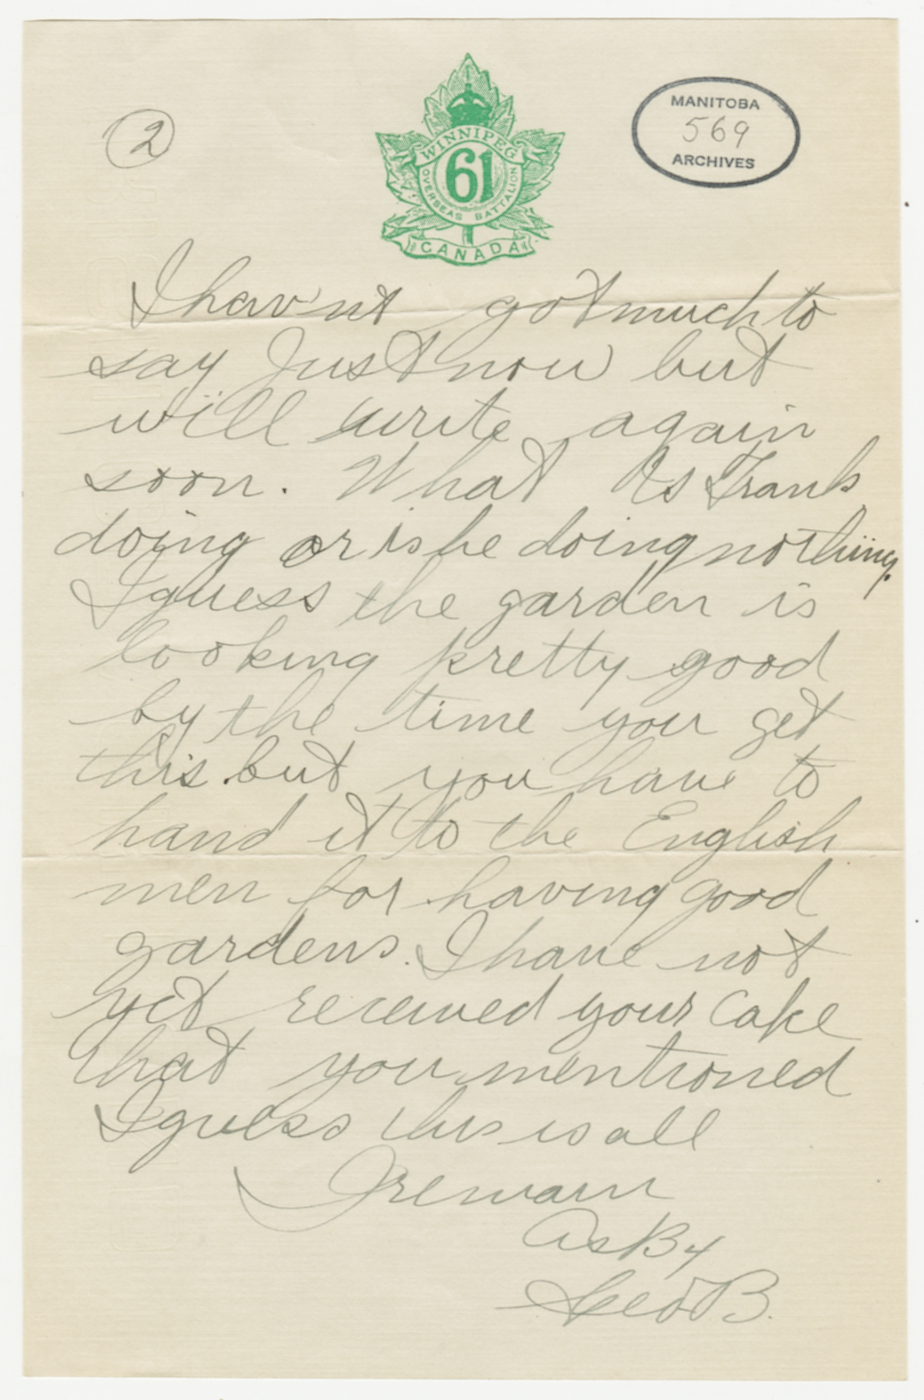 2
WINNIPEG
61
OVERSEAS BATTALION
CANADA
MANITOBA
569
ARCHIVES
I hav'nt got much to
say Just now but
will write again
soon. What Is Frank
doing or is he doing nothing.
I guess the garden is
looking pretty good
by the time you get
this. but you have to
hand it to the English
men for having good
gardens. I have not
yet received your cake
that you mentioned
I guess this is all
I remain
As By
Geo B.